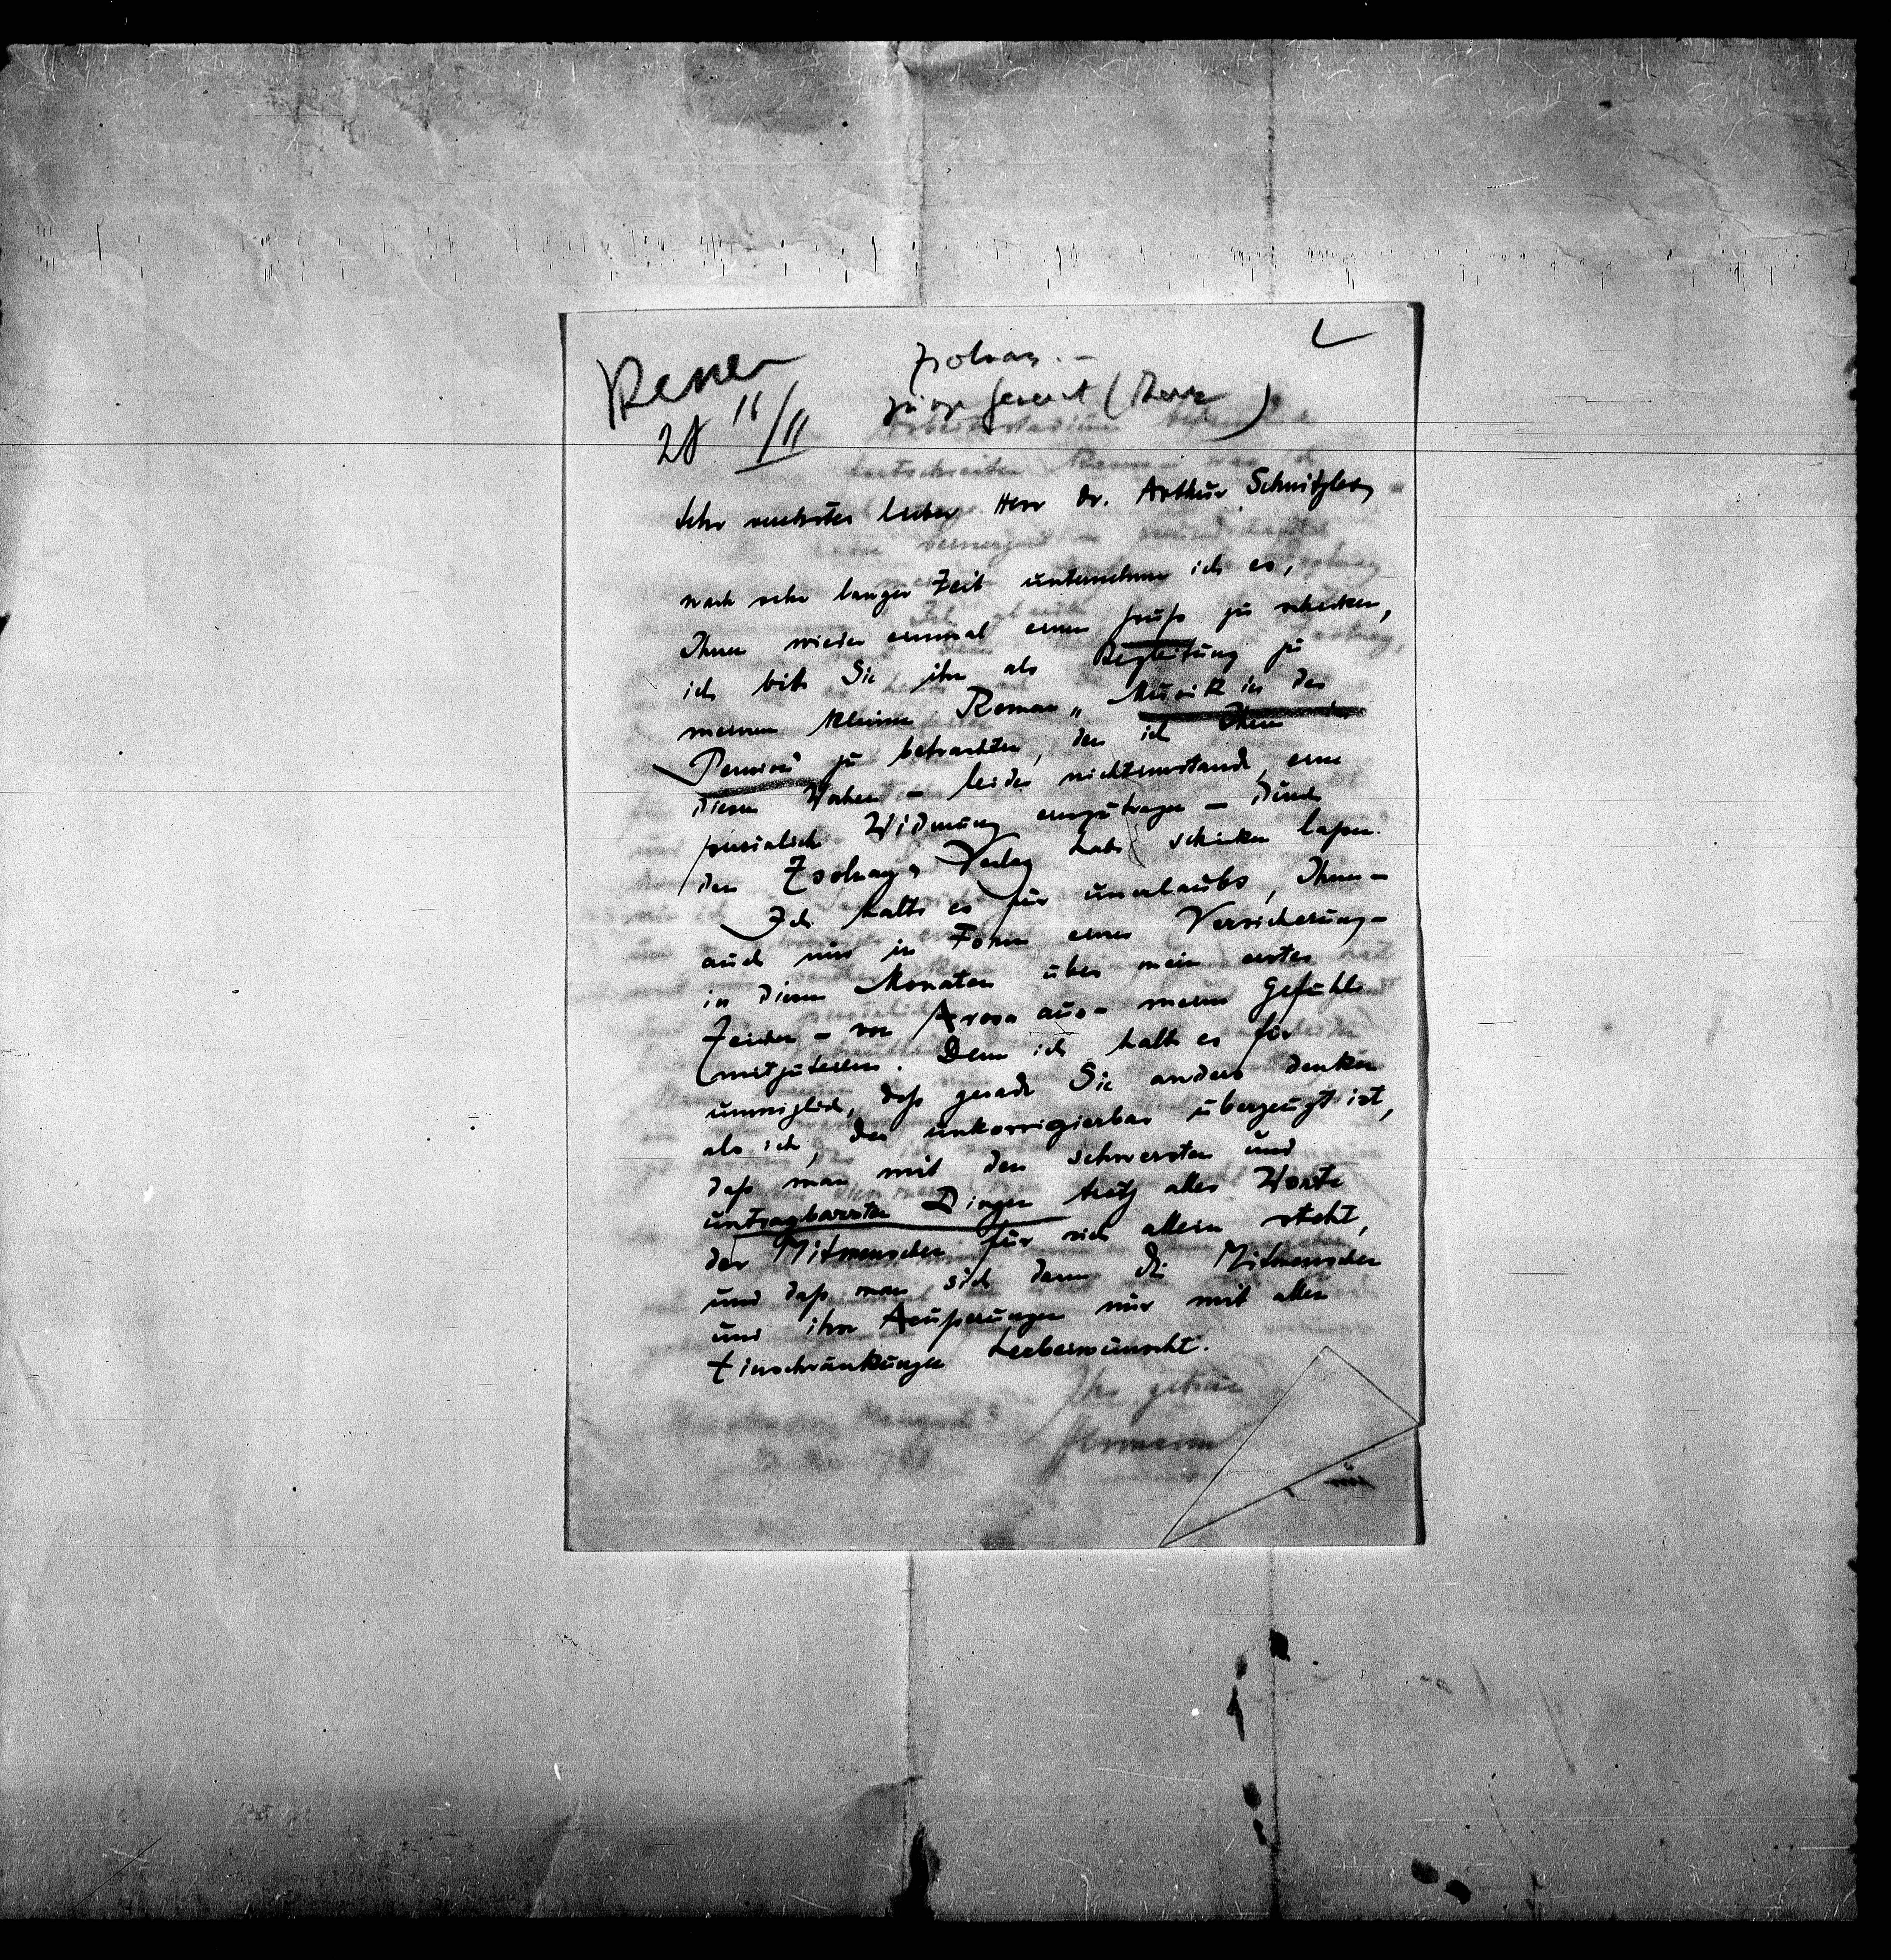 28 16/11
Zsolnay. –
Sehr verehrter lieber Herr Dr. Arthur Schnitzler,
nach sehr langer Zeit unternehme ich es,
Ihnen wieder einmal einen Gruß zu schicken,
ich bitte Sie ihn als Begleitung zu
meinem kleinen Roman „Musik in der
Pension“ zu betrachten, den ich Ihnen in
diesen Wochen – leider nichtimstande, eine
persönliche Widmung einzutragen – durch
den Zsolnay-Verlag habe schicken lassen.
Ich halte es für unerlaubt, Ihnen –
auch nur in Form einer Versicherung –
in diesen Monaten über mein erstes
Zeichen – von Arosa aus – meine Gefühle
mitzuteilen. Denn ich halte es für
unmöglich, daß gerade Sie anders denken
als ich, der unkorrigierbar überzeugt ist,
daß man mit den schwersten und
untragbarsten Dingen trotz aller Worte
der Mitmenschen für sich allein steht,
und daß man sich dann die Mitmenschen
und ihre Äußerungen nur mit allen
Einschränkungen herbeiwünscht.